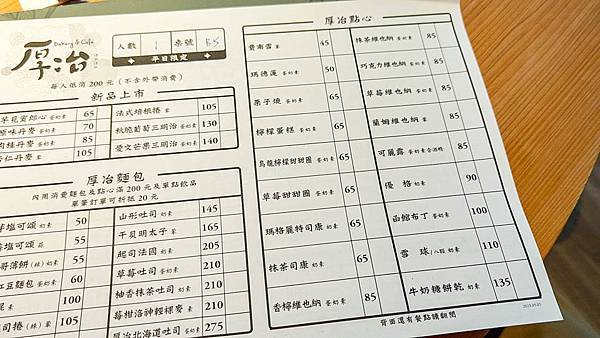 Bakery & Café
厚冶
人數 1 桌號 B5
平日限定
每人低消 200 元 (不含外帶消費)
新品上市
芋花賓郎心 蛋奶素 65
原味丹麥 蛋奶素 70
肉桂丹麥 蛋奶素 85
杏仁丹麥 葷 105
法式培根捲 葷 105
秋脆葡萄三明治 蛋奶素 130
愛文芒果三明治 蛋奶素 140
厚冶麵包
內用消費麵包及點心滿 200 元及單點飲品
單筆訂單可折抵 20 元
塩可頌 奶素 50
塩可頌 蒜 55
哥薄餅(辣) 奶素 55
紅豆麵包 蛋奶素 60
素 100
司捲(辣) 葷 105
山形吐司 奶素 145
干貝明太子 葷 165
起司法國 奶素 205
草莓吐司 蛋奶素 210
柚香抹茶吐司 奶素 210
莓柑洛神輕粿麥 素 210
厚冶北海道吐司 蛋奶素 275
厚冶點心
費南雪 葷 45
瑪德蓮 蛋奶素 50
栗子燒 蛋奶素 65
檸檬蛋糕 蛋奶素 65
烏龍檸檬甜甜圈 蛋奶素 65
草莓甜甜圈 蛋奶素 65
瑪格麗特司康 奶素 65
抹茶司康 奶素 65
香檸維也納 蛋奶素 85
抹茶維也納 蛋奶素 85
巧克力維也納 蛋奶素 85
草莓維也納 蛋奶素 85
蘭姆維也納 葷 85
可麗露 蛋奶素含酒精 85
優格 奶素 90
函館布丁 蛋奶素 100
雪球/八顆 奶素 110
牛奶糖餅乾 奶素 135
背面還有餐點請翻閱